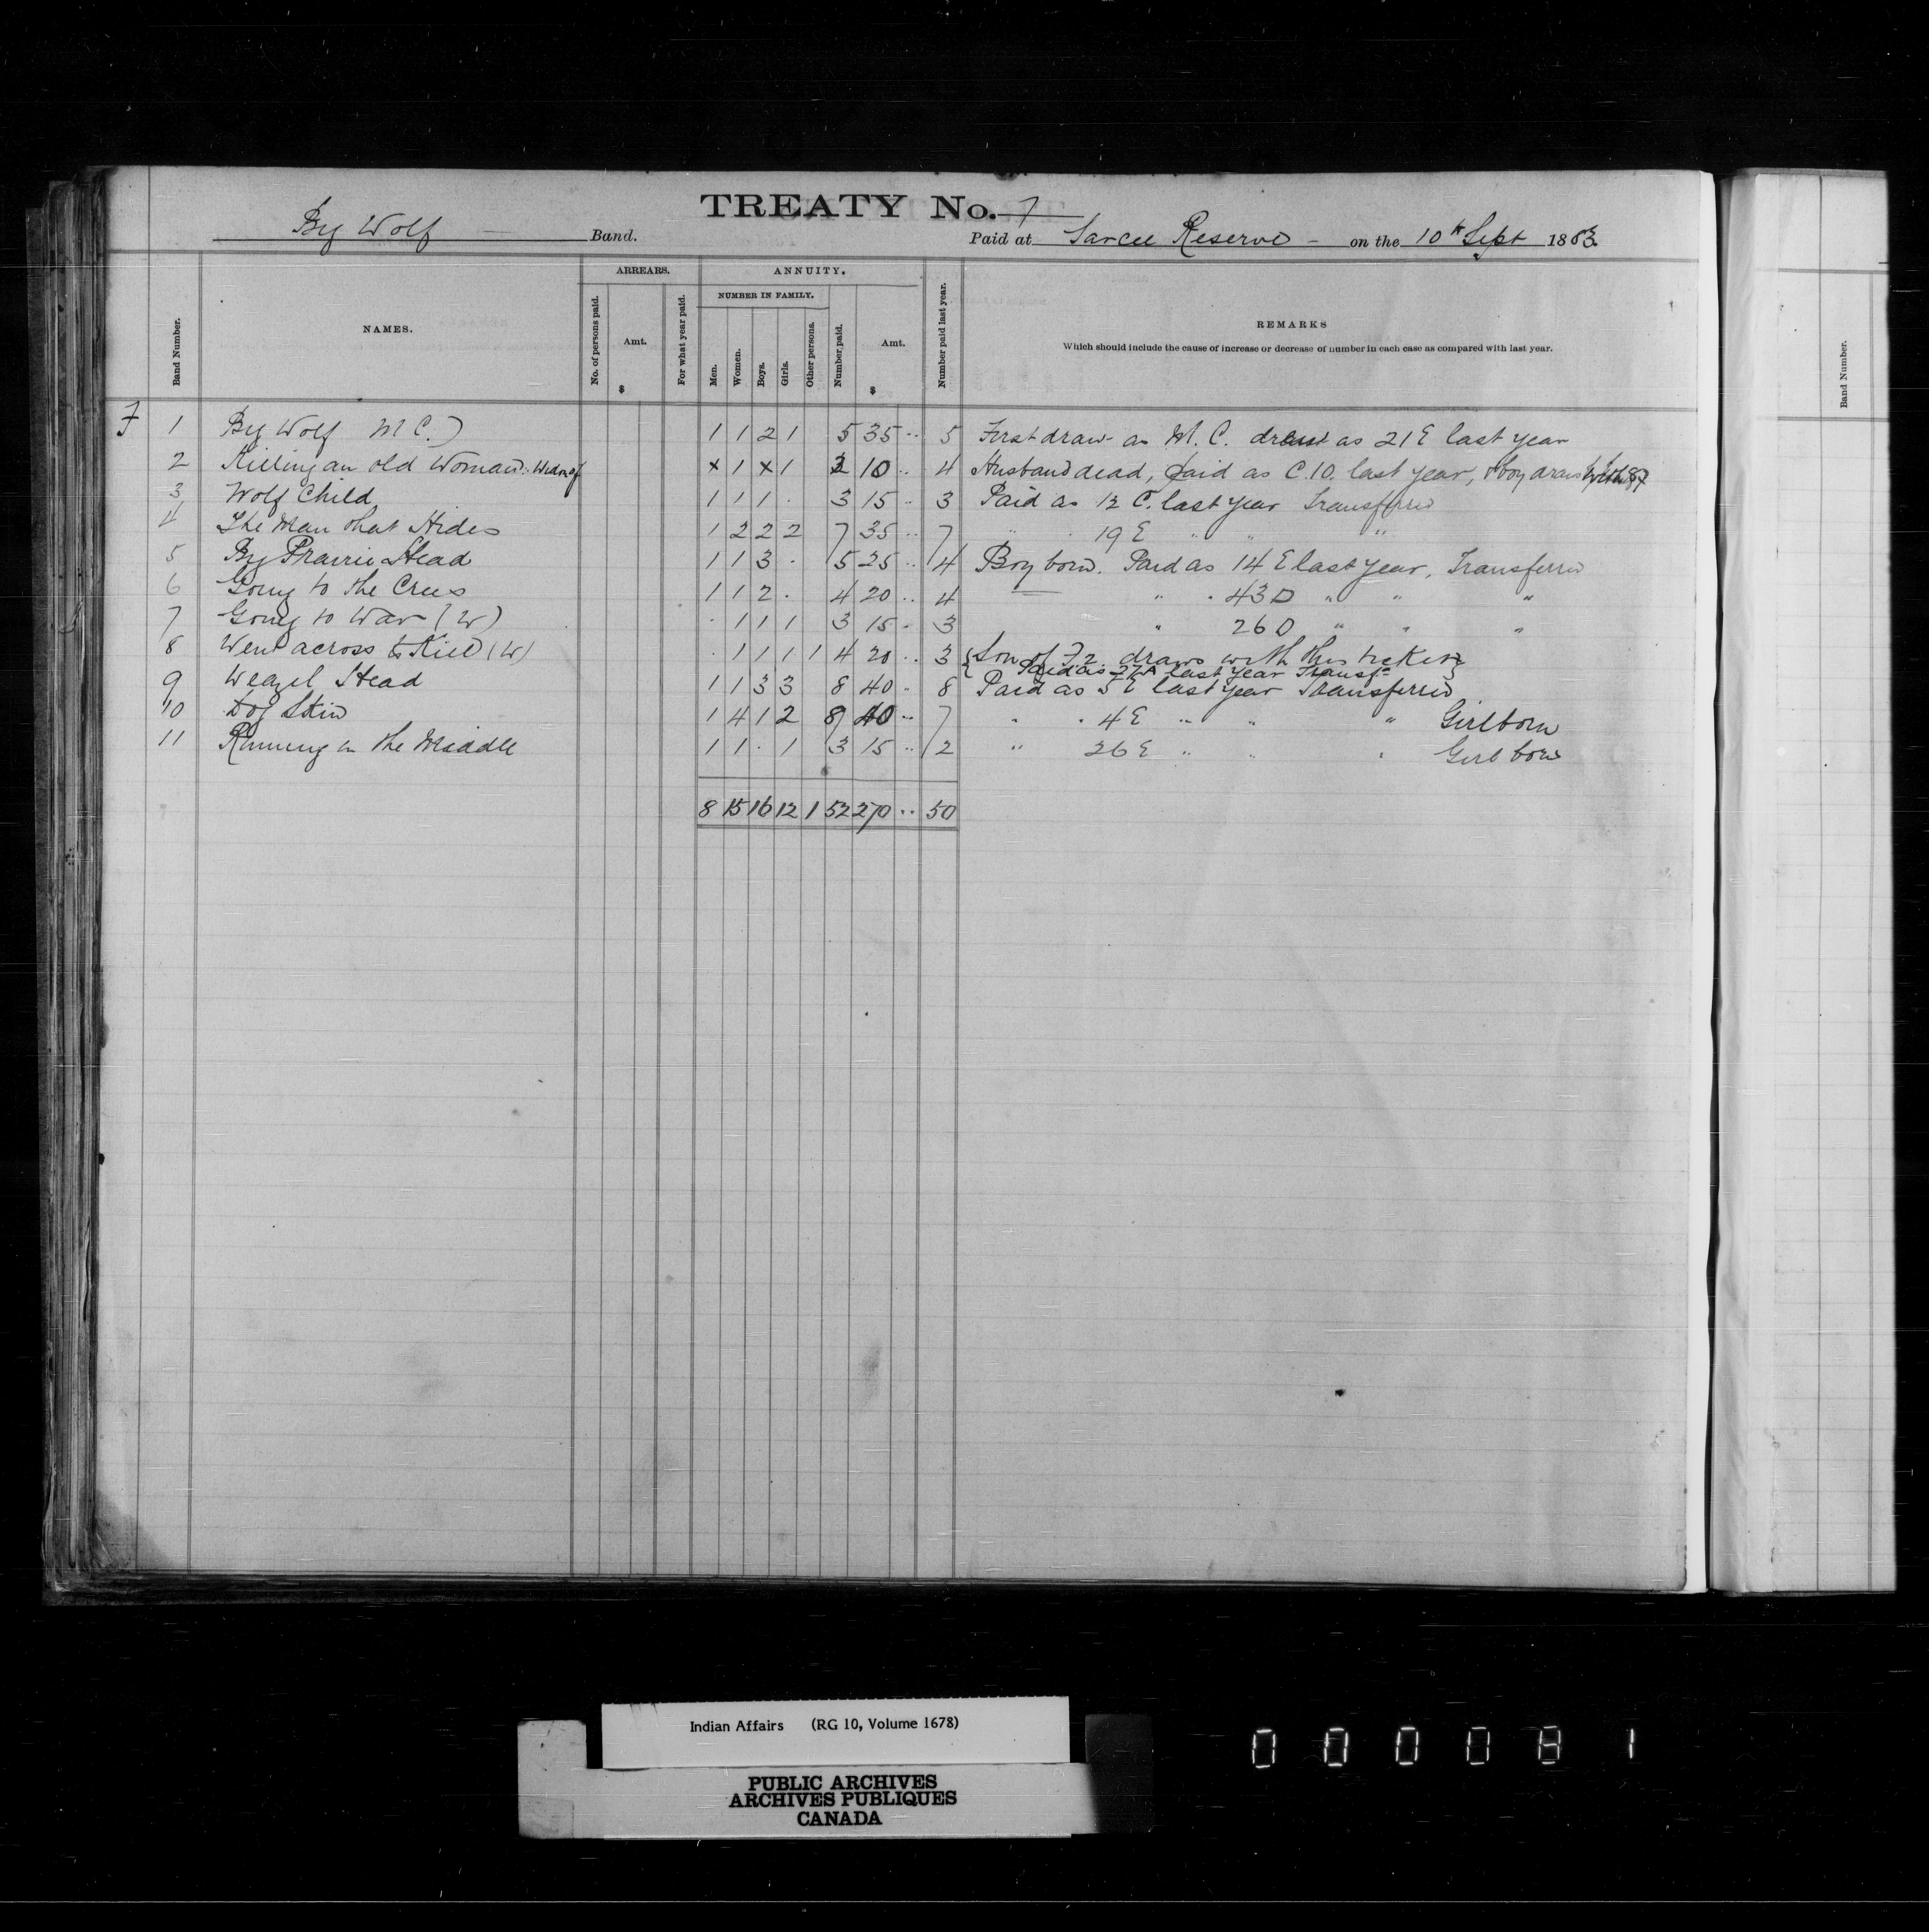 TREATY No. 7
Big Wolf Band.
Paid at Sarcee Reserve - on the 10th Sept 1883.
Band Number.
NAMES.
ARREARS.
No. of persons paid.
Amt.
$
For what year paid.
ANNUITY.
NUMBER IN FAMILY.
Men.
Women.
Boys.
Girls.
Other persons.
Number paid.
Amt.
$
Number paid last year.
REMARKS
Which should include the cause of increase or decrease of number in each case as compared with last year.
F 1 Big Wolf M C.) 1 1 2 1 5 35 .. 5 First draw as M. C. drew as 21 E last year
2 Killing an old Woman: Widow of x 1 x 1 2 10 .. 4 Husband dead, paid as C. 10. last year, & boy draws with 8 F
3 Wolf Child 1 1 1 . 3 15 .. 3 Paid as 12 C. last year Transferred
4 The Man that Hides 1 2 2 2 7 35 .. 7 " . 19 E " " "
5 Big Prairie Head 1 1 3 . 5 25 .. 4 Boy born. Paid as 14 E last year, Transferred
6 Going to the Crees 1 1 2 . 4 20 .. 4 " " 43 D " " "
7 Going to War (W) . 1 1 1 3 15 .. 3 " 26 D " " "
8 Went across to Kill (W) . 1 1 1 1 4 20 .. 3 { Son of F2. draws with this ticket }
Paid as 27 A last year Transfd
9 Weazel Head 1 1 3 3 8 40 . 8 Paid as 5 E last year Transferred
10 Dog Skin 1 4 1 2 8 40 .. 7 " " 4 E " " " Girl born
11 Running in the Middle 1 1 . 1 3 15 .. 2 " 26 E " " " Girl born
8 15 16 12 1 52 270 .. 50
Band Number.
Indian Affairs (RG 10, Volume 1678)
PUBLIC ARCHIVES
ARCHIVES PUBLIQUES
CANADA
0 0 0 0 8 1